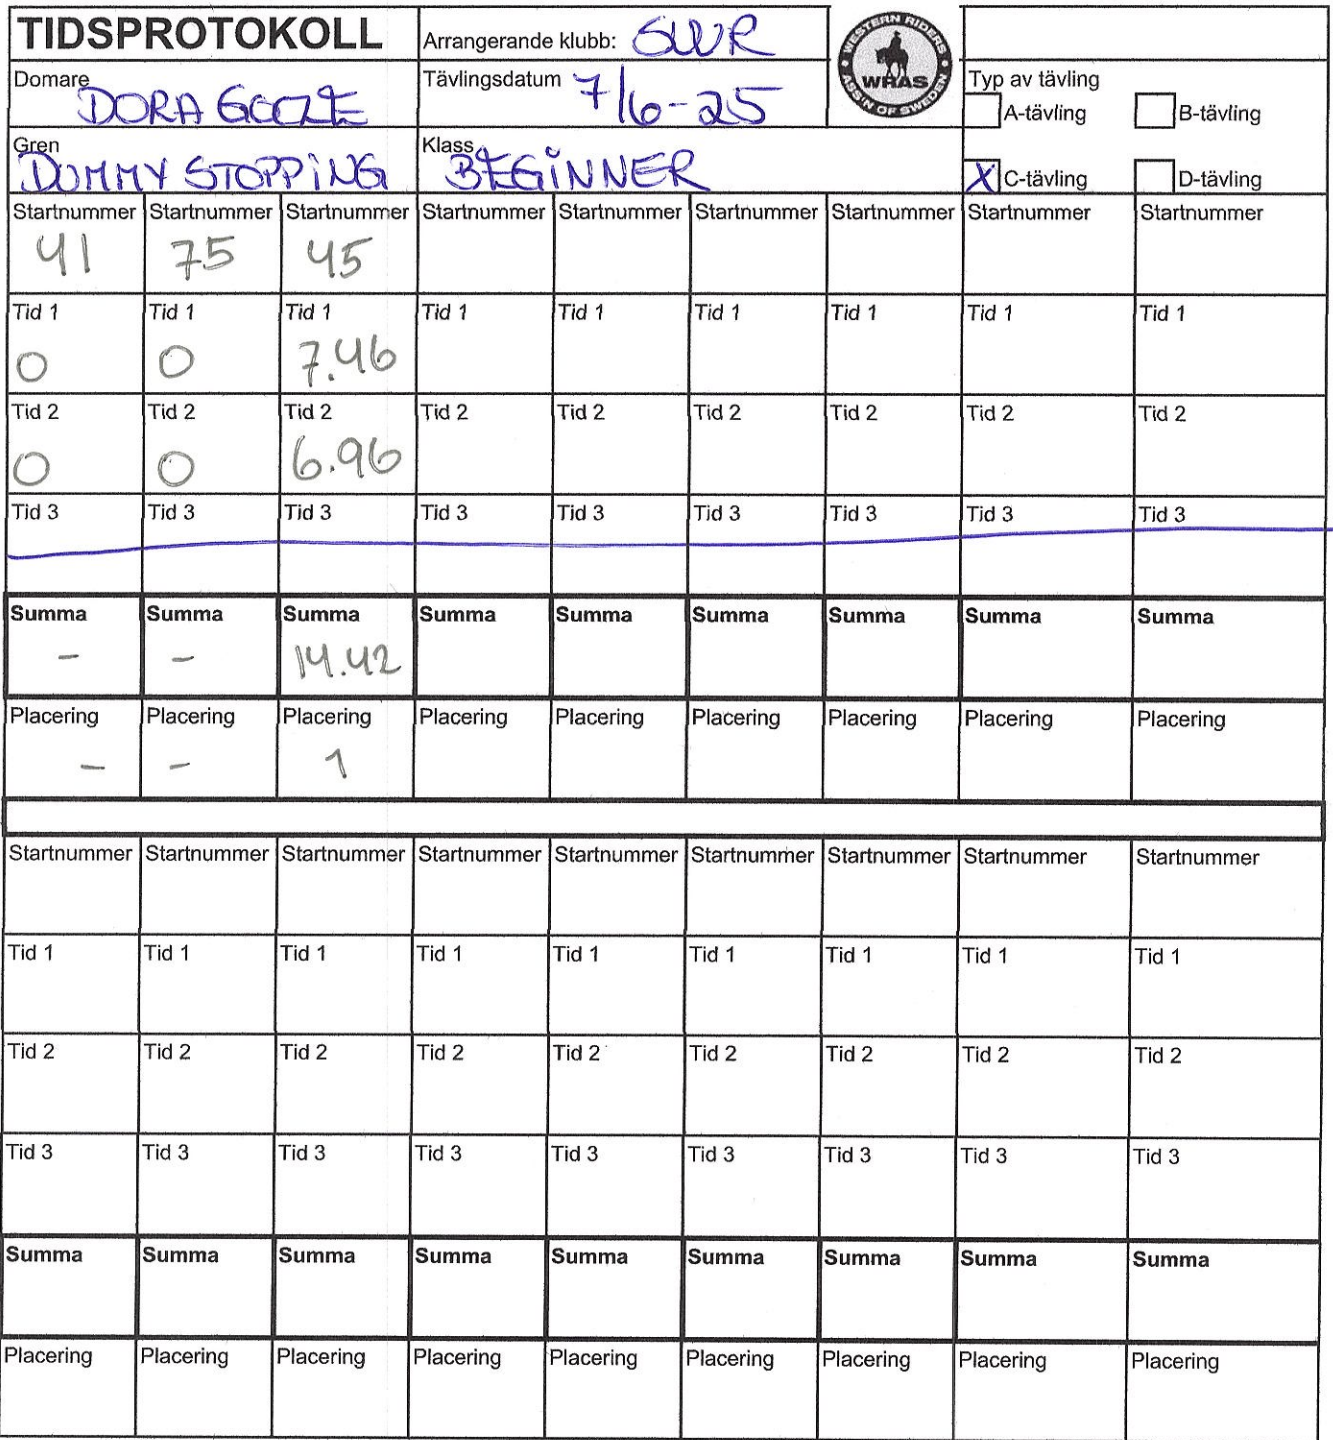 TIDSPROTOKOLL
Arrangerande klubb: SWR
WESTERN RIDERS
WRAS
ASS'N OF SWEDEN
Domare DORA
Tävlingsdatum 7/6-25
Typ av tävling
A-tävling B-tävling
Gren DUMMY STOPPING
Klass BEGINNER
X C-tävling D-tävling
Startnummer Startnummer Startnummer Startnummer Startnummer Startnummer Startnummer Startnummer Startnummer
41 75 45
Tid 1 Tid 1 Tid 1 Tid 1 Tid 1 Tid 1 Tid 1 Tid 1 Tid 1
0 0 7.46
Tid 2 Tid 2 Tid 2 Tid 2 Tid 2 Tid 2 Tid 2 Tid 2 Tid 2
0 0 6.96
Tid 3 Tid 3 Tid 3 Tid 3 Tid 3 Tid 3 Tid 3 Tid 3 Tid 3
Summa Summa Summa Summa Summa Summa Summa Summa Summa
- - 14.42
Placering Placering Placering Placering Placering Placering Placering Placering Placering
- - 1
Startnummer Startnummer Startnummer Startnummer Startnummer Startnummer Startnummer Startnummer Startnummer
Tid 1 Tid 1 Tid 1 Tid 1 Tid 1 Tid 1 Tid 1 Tid 1 Tid 1
Tid 2 Tid 2 Tid 2 Tid 2 Tid 2 Tid 2 Tid 2 Tid 2 Tid 2
Tid 3 Tid 3 Tid 3 Tid 3 Tid 3 Tid 3 Tid 3 Tid 3 Tid 3
Summa Summa Summa Summa Summa Summa Summa Summa Summa
Placering Placering Placering Placering Placering Placering Placering Placering Placering